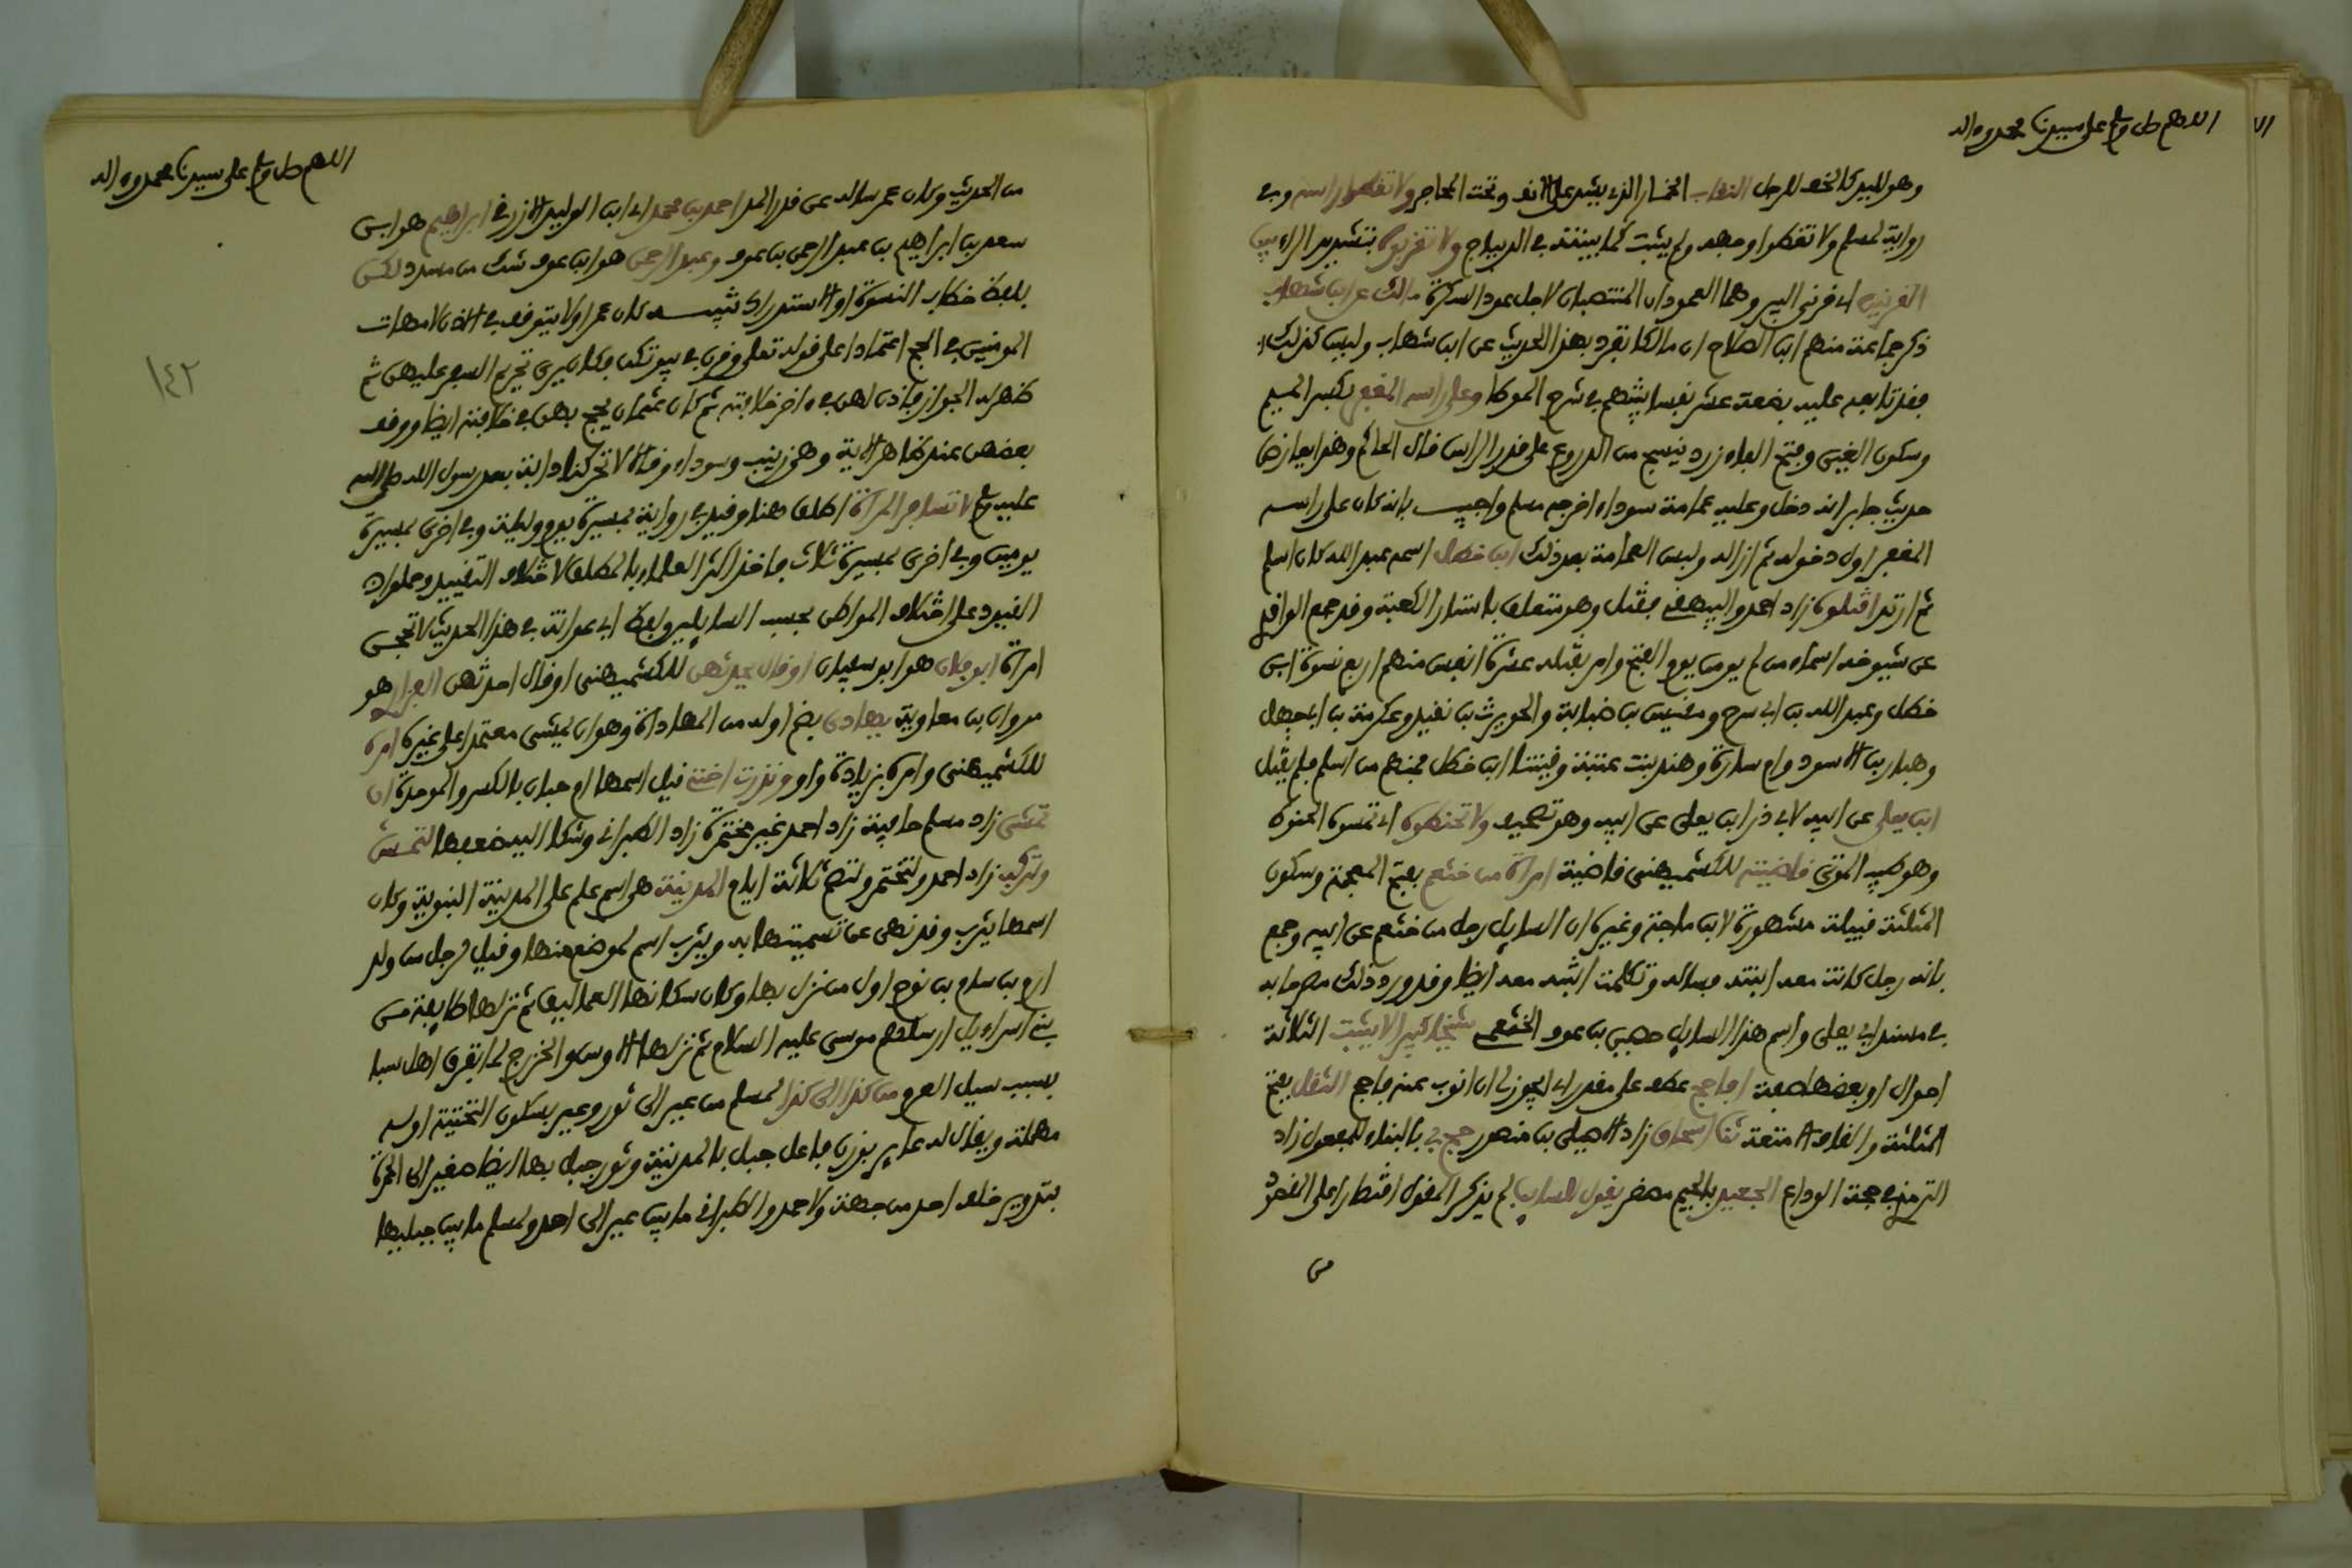 اللهم صل وسلم على سيدنا محمد وءاله
وهو لليد كالخف للرجل النقاب الخمار الذي يشد على الانف وتحت المحاجر ولا تغطوا راسه وفي
رواية لمسلم ولا تغطوا وجهه ولم يثبت كما بينته في الديباج ولا تقربوه بتشديد الراء بين
القرنين اي قرني البير وهما العمودان المنتصبان لاجل عود البكرة مالك عن ابن شهاب
ذكر جماعة منهم ابن الصلاح ان مالكا تفرد بهذا الحديث عن ابن شهاب وليس كذلك
فقد تابعه عليه بضعة عشر نفسا بينتهم في شرح الموطا وعلى راسه المغفر بكسر الميم
وسكون الغين وفتح الفاء زرد ينسج من الدروع على قدر الراس قال الحاكم وهذا يعارض
حديث جابر انه دخل وعليه عمامة سوداء اخرجه مسلم واجيب بانه كان على راسه
المغفر اول دخوله ثم ازاله ولبس العمامة بعد ذلك ابن خطل اسمه عبد الله كان اسلم
ثم ارتد اقتلوه زاد احمد والبيهقي فقتل وهو متعلق باستار الكعبة وقد جمع الواقدي
عن شيوخه اسماء من لم يومن يوم الفتح وامر بقتله عشرة انفس منهم اربع نسوة ابن
خطل وعبد الله بن ابي سرح ومقيس بن ضبابة والحويرث بن نقيد وعكرمة بن ابي جهل
وهبار بن الاسود وام سارة وهند بنت عتبة وقينتا ابن خطل فمنهم من اسلم فلم يقتل
ابن يعلى عن ابيه لابي ذر ابن يعلى عن ابيه وهو تصحيف ولا تحنطوه اي تمسوه الحنوط
وهو طيب الموتى قاضيته للكشميهني قاضية امراة من خثعم بفتح المعجمة وسكون
المثلثة قبيلة مشهورة لابن ماجة وغيره ان السايل رجل من خثعم عن ابيه وجمع
بانه رجل كانت معه ابنته فساله وتكلمت ابنته معه ايضا وقد ورد ذلك مصرحا به
في مسند ابي يعلى واسم هذا السايل حصين بن عوف الخثعمي شيخا كبيرا لا يثبت الثلاثة
احوال او بعضها صفة افاحج عطف على مقدر اي ايجوز لي ان انوب عنه فاحج الثقل بفتح
المثلثة والقاف الامتعة ثنا اسحاق زاد الاصيلي بن منصور حج بي بالبناء للمفعول زاد
الترمذي في حجة الوداع الجعيد بالجيم مصغر يقول للسايب لم يذكر المقول اقتصارا على الغرض
من
اللهم صل وسلم على سيدنا محمد وءاله
من الحديث وكان عمر ساله عن قدر المد احمد بن محمد اي ابن الوليد الازرقي ابراهيم هو ابن
سعد بن ابراهيم بن عبد الرحمن بن عوف وعبد الرحمن هو ابن عوف شك من مسدد لكن
بلفظ خطاب النسوة او الاستدراك تنبيه كان عمر اولا يتوقف في الاذن لامهات
المومنين في الحج اعتمادا على قوله تعلى وقرن في بيوتكن فكان يرى تحريم السفر عليهن ثم
ظهر له الجواز فاذن لهن في ءاخر خلافته ثم كان عثمان يحج بهن في خلافته ايضا ووقف
بعضهن عند ظاهر الاية وهي زينب وسوداء وقالا لا تحركنا دابة بعد رسول الله صلى الله
عليه وسلم لا تسافر المراة اطلق هنا وقيد في رواية بمسيرة يوم وليلة وفي اخرى بمسيرة
يومين وفي اخرى بمسيرة ثلاث فاخذ اكثر العلماء بالمطلق لاختلاف التقييد وحملوا
القيود على اختلاف المواطن بحسب السايلين ولفظ ابي عوانة في هذا الحديث لا تحجن
امراة ابو فلان هو ابو سفيان او قال يحدثهن للكشميهني او قال احدثهن الفزاري هو
مروان بن معاوية يهادى بضم اوله من المهاداة وهو ان يمشي معتمدا على غيره امره
للكشميهني وامره بزيادة واو ونذرت اختي قيل اسمها ام حبان بالكسر والموحدة ان
تمشي زاد مسلم حافية زاد احمد غير مختمرة زاد الطبراني وشكا اليه ضعفها لتمش
ولتركب زاد احمد ولتختمر ولتصم ثلاثة ايام المدينة هي اسم علم على المدينة النبوية وكان
اسمها يثرب وقد نهى عن تسميتها به ويثرب اسم لموضع منها وقيل لرجل من ولد
ارم بن سام بن نوح اول من نزل بها وكان سكانها العماليق ثم نزلها طايفة من
بني اسراءيل ارسلهم موسى عليه السلام ثم نزلها الاوس والخزرج لما تفرق اهل سبا
بسبب سيل العرم من كذا الى كذا لمسلم من عير الى ثور وعير بسكون التحتية اوله
مهملة ويقال له عاير بوزن فاعل جبل بالمدينة وثور جبل بها ايضا صغير الى الحمرة
بتدوير خلف احد من جهته ولاحمد والطبراني ما بين عير الى احد ولمسلم ما بين جبليها
١٤٢